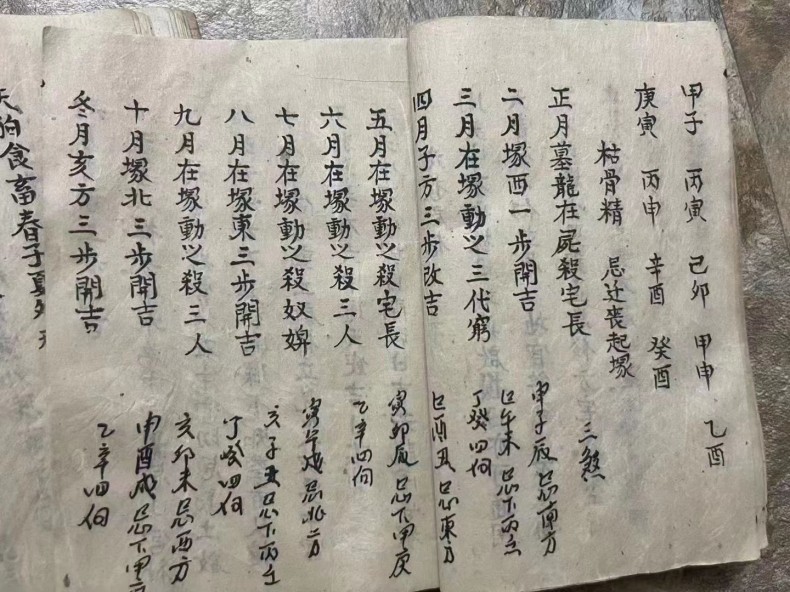 甲子 丙寅 己卯 甲申 乙酉
庚寅 丙申 辛酉 癸酉
枯骨精 忌迁喪起塚
正月墓龍在屍殺宅長
二月塚西一步開吉
三月在塚動之三代窮
四月子方三步改吉
三煞
申子辰忌南方
巳午未忌下丙壬
丁癸四向
巳酉丑忌東方
五月在塚動之殺宅長
六月在塚動之殺三人
七月在塚動之殺奴婢
八月在塚東三步開吉
九月在塚動之殺三人
十月塚北三步開吉
冬月亥方三步開吉
寅卯辰忌下甲庚
乙辛四向
寅午戌忌北方
亥子丑忌下丙壬
丁癸四向
亥卯未忌西方
申酉戌忌下甲
乙辛四向
天狗食畜春子夏